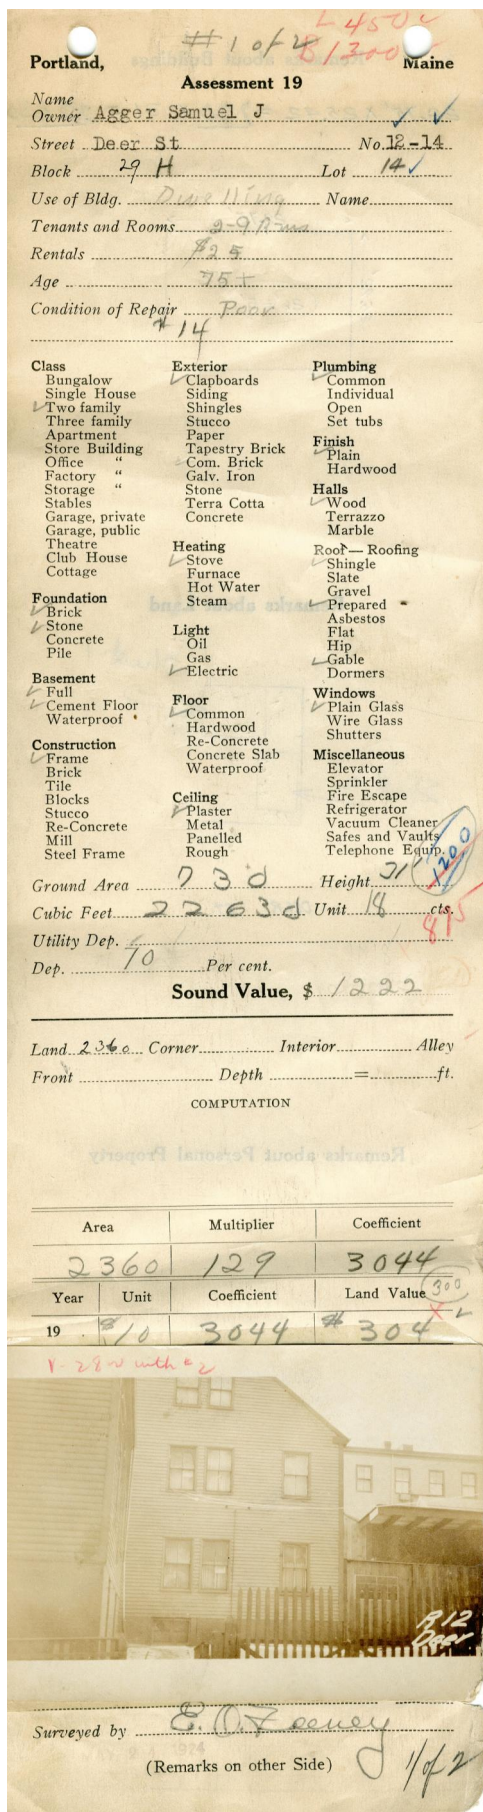 # 1 of 2
L 450
B 1300
Portland, Maine
Assessment 19
Name
Owner Agger Samuel J
Street Deer St No. 12-14
Block 29 H Lot 14
Use of Bldg. Dwelling Name
Tenants and Rooms 2-9 Rms
Rentals $25
Age 75+
Condition of Repair Poor
# 14
Class
Bungalow
Single House
Two family
Three family
Apartment
Store Building
Office "
Factory "
Storage "
Stables
Garage, private
Garage, public
Theatre
Club House
Cottage
Foundation
Brick
Stone
Concrete
Pile
Basement
Full
Cement Floor
Waterproof
Construction
Frame
Brick
Tile
Blocks
Stucco
Re-Concrete
Mill
Steel Frame
Exterior
Clapboards
Siding
Shingles
Stucco
Paper
Tapestry Brick
Com. Brick
Galv. Iron
Stone
Terra Cotta
Concrete
Heating
Stove
Furnace
Hot Water
Steam
Light
Oil
Gas
Electric
Floor
Common
Hardwood
Re-Concrete
Concrete Slab
Waterproof
Ceiling
Plaster
Metal
Panelled
Rough
Plumbing
Common
Individual
Open
Set tubs
Finish
Plain
Hardwood
Halls
Wood
Terrazzo
Marble
Roof — Roofing
Shingle
Slate
Gravel
Prepared
Asbestos
Flat
Hip
Gable
Dormers
Windows
Plain Glass
Wire Glass
Shutters
Miscellaneous
Elevator
Sprinkler
Fire Escape
Refrigerator
Vacuum Cleaner
Safes and Vaults
Telephone Equip.
1200
Ground Area 730 Height 31'
Cubic Feet 22630 Unit 18 cts.
815
Utility Dep.
Dep. 70 Per cent.
Sound Value, $ 1222
Land 2360 Corner Interior Alley
Front Depth = ft.
COMPUTATION
Area Multiplier Coefficient
2360 129 3044
Year Unit Coefficient Land Value 300
19 $10 3044 # 304
with #2
R 12
Deer
Surveyed by E. O. Feeney
(Remarks on other Side)
1 of 2